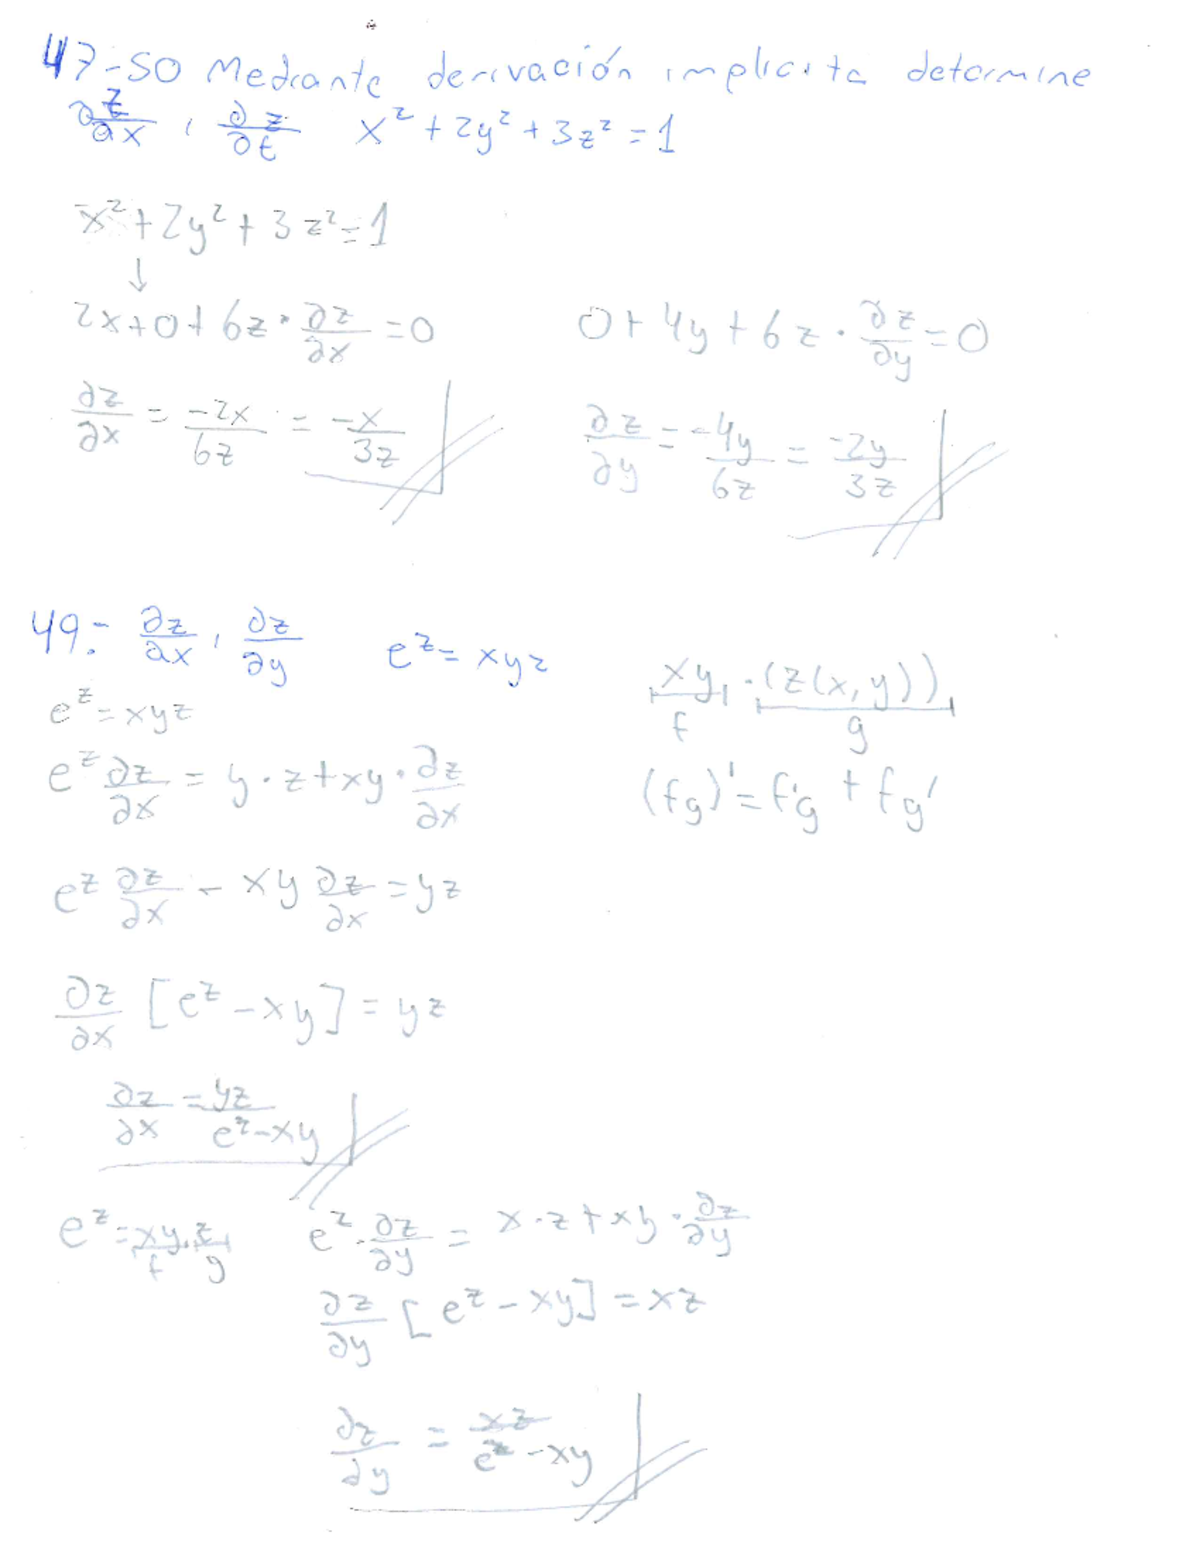 47-50 Mediante derivación implicita determine
∂z/∂x , ∂z/∂t x² + 2y² + 3z² = 1
x² + 2y² + 3z² = 1
↓
2x + 0 + 6z · ∂z/∂x = 0
∂z/∂x = -2x/6z = -x/3z
0 + 4y + 6z · ∂z/∂y = 0
∂z/∂y = -4y/6z = -2y/3z
49: ∂z/∂x , ∂z/∂y e^z = xyz
e^z = xyz
e^z ∂z/∂x = y · z + xy · ∂z/∂x
e^z ∂z/∂x - xy ∂z/∂x = yz
∂z/∂x [e^z - xy] = yz
∂z/∂x = yz/(e^z - xy)
xy · (z(x, y))
f g
(fg)' = f'g + fg'
e^z = xy · z
f g
e^z · ∂z/∂y = x · z + xy · ∂z/∂y
∂z/∂y [e^z - xy] = xz
∂z/∂y = xz/(e^z - xy)